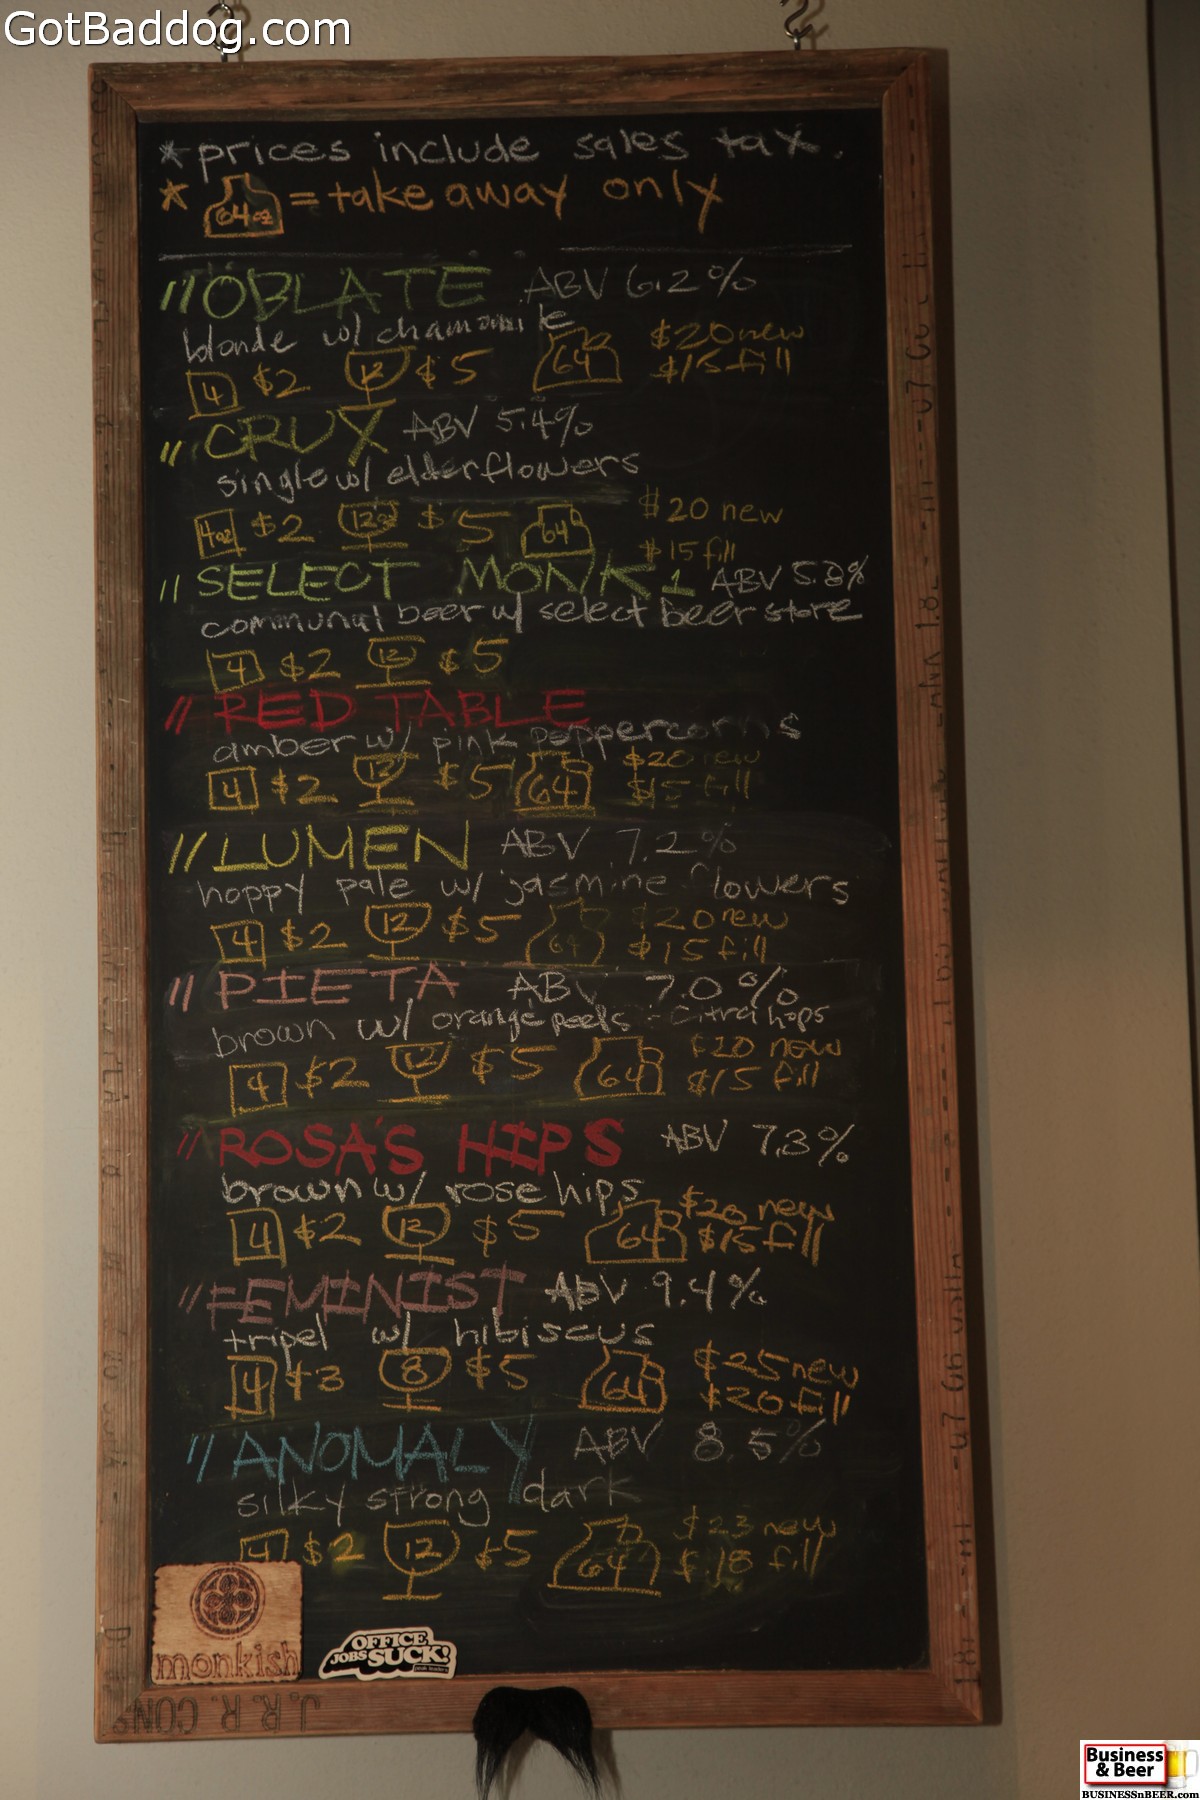 GotBaddog.com
*prices include sales tax.
* 64oz = take away only
// OBLATE ABV 6.2%
blonde w/ chamomile
4 $2 12 $5 64 $20 new
$15 fill
// CRUX ABV 5.4%
single w/ elderflowers
4oz $2 12oz $5 64 $20 new
$15 fill
// SELECT MONK 1 ABV 5.8%
communal beer w/ select beer store
4 $2 12 $5
// RED TABLE
amber w/ pink peppercorns
4 $2 12 $5 64 $20 new
$15 fill
// LUMEN ABV 7.2%
hoppy pale w/ jasmine flowers
4 $2 12 $5 64 $20 new
$15 fill
// PIETA ABV 7.0%
brown w/ orange peels - citra hops
4 $2 12 $5 64 $20 new
$15 fill
// ROSA'S HIPS ABV 7.3%
brown w/ rose hips
4 $2 12 $5 64 $20 new
$15 fill
// FEMINIST ABV 9.4%
tripel w/ hibiscus
4 $3 8 $5 64 $25 new
$20 fill
// ANOMALY ABV 8.5%
silky strong dark
4 $2 12 $5 64 $23 new
$18 fill
monkish
OFFICE
JOBS SUCK!
J.R.R. CON
Business
& Beer
BUSINESSnBEER.com